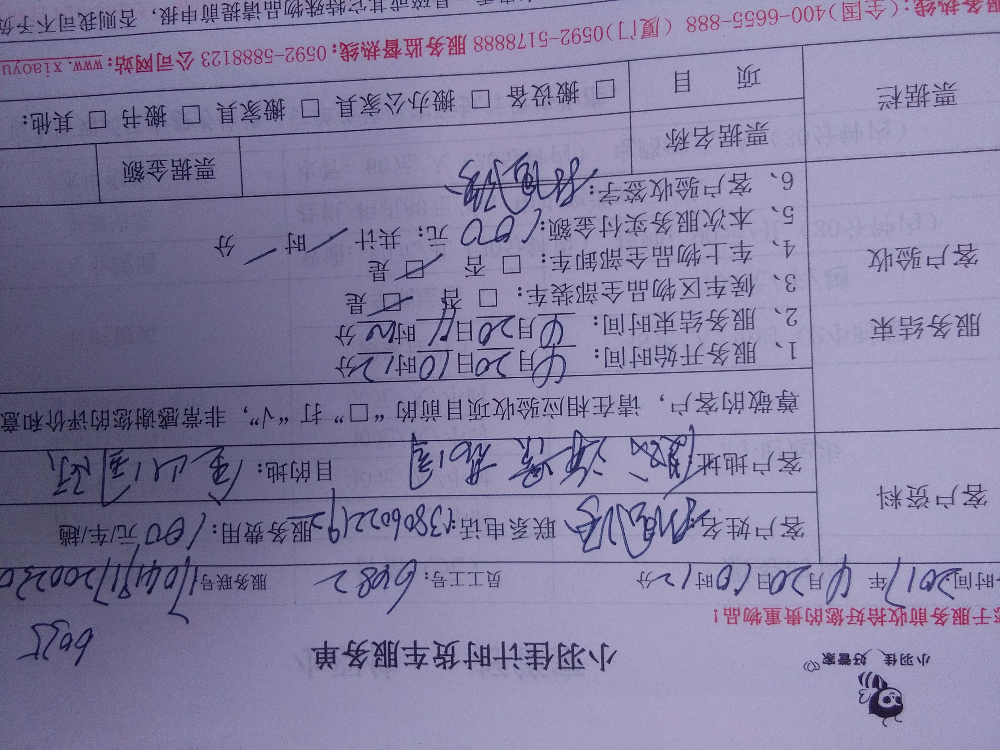 小羽佳 好管家
小羽佳计时货车服务单
6025
于服务前收拾好您的贵重物品！
时间：2017年4月20日10时12分 员工工号：6482 服务联号
客户资料
客户姓名： 联系电话：13806022192 服务费用：100元/车/趟
客户地址： 目的地：
尊敬的客户，请在相应验收项目前的“□”打“√”，非常感谢您的评价和意
服务结束
客户验收
1、服务开始时间：4月20日10时12分
2、服务结束时间：4月20日11时00分
3、候车区物品全部装车：□否 □是
4、车上物品全部卸车：□否 □是
5、本次服务实付金额：100元；共计/时/分
6、客户验收签字：
票据栏
票据名称 票据金额
项目 □搬设备 □搬办公家具 □搬家具 □搬书 □其他：
服务热线：(全国)400-6655-888 (厦门)0592-5178888 服务监督热线：0592-5888123 公司网站：www.xiaoyu
易碎或其它特殊物品请提前申报，否则我司不予负